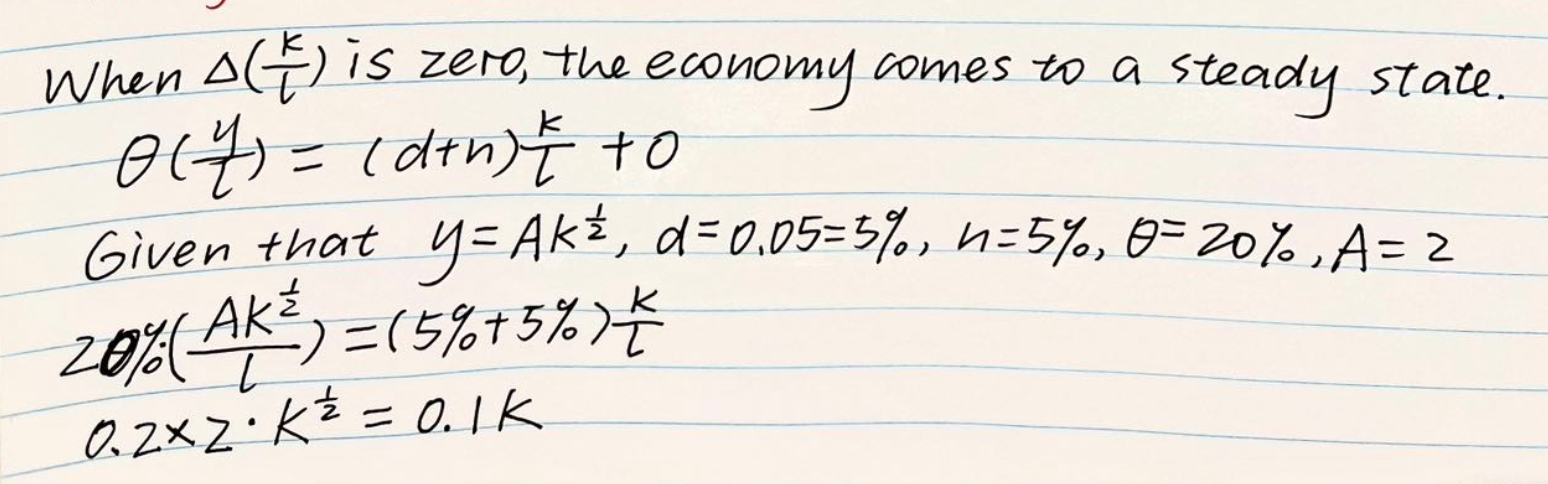 When Δ(k/l) is zero, the economy comes to a steady state.
θ(y/l) = (d+n)k/l + 0
Given that y = Ak^½, d=0.05=5%, n=5%, θ=20%, A=2
20%(Ak^½/l) = (5%+5%)k/l
0.2×2·k^½ = 0.1k